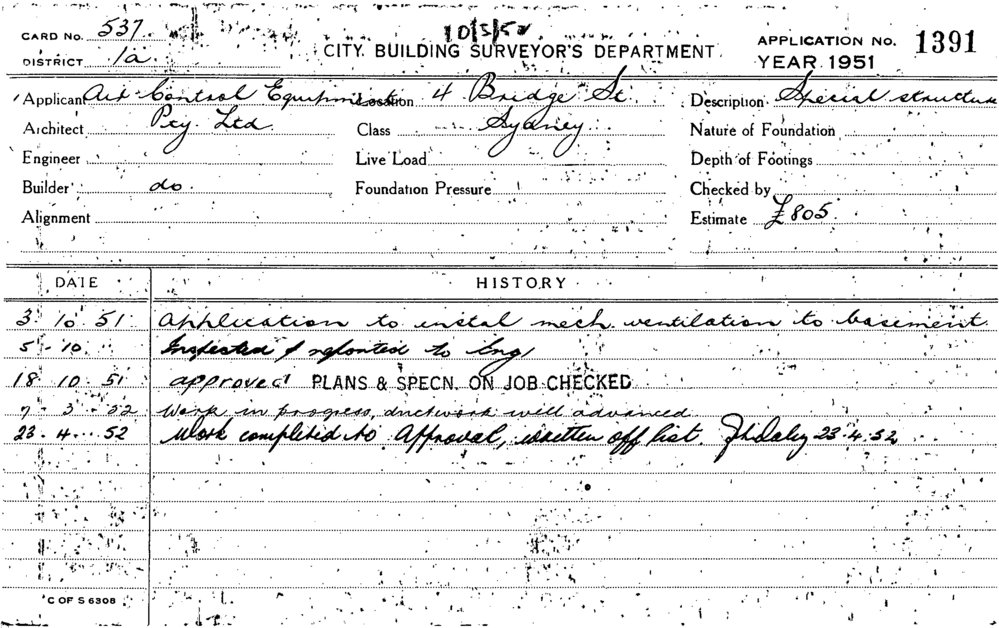 10/5/52
CARD No. 537
CITY BUILDING SURVEYOR'S DEPARTMENT
APPLICATION No. 1391
DISTRICT 1a
YEAR 1951
Applicant Air Control Equipment Location 4 Bridge St. Description Special structure
Architect Pty. Ltd Class Sydney Nature of Foundation
Engineer Live Load Depth of Footings
Builder do. Foundation Pressure Checked by
Alignment Estimate £805
DATE HISTORY
3 10 51 Application to instal mech. ventilation to basement
5 - 10 Inspected & reported to Eng
18 10 51 approved PLANS & SPECN. ON JOB CHECKED
7 - 3 - 52 Work in progress, ductwork well advanced
23. 4 52 Work completed to Approval, written off list. 23.4.52
C OF S 6308